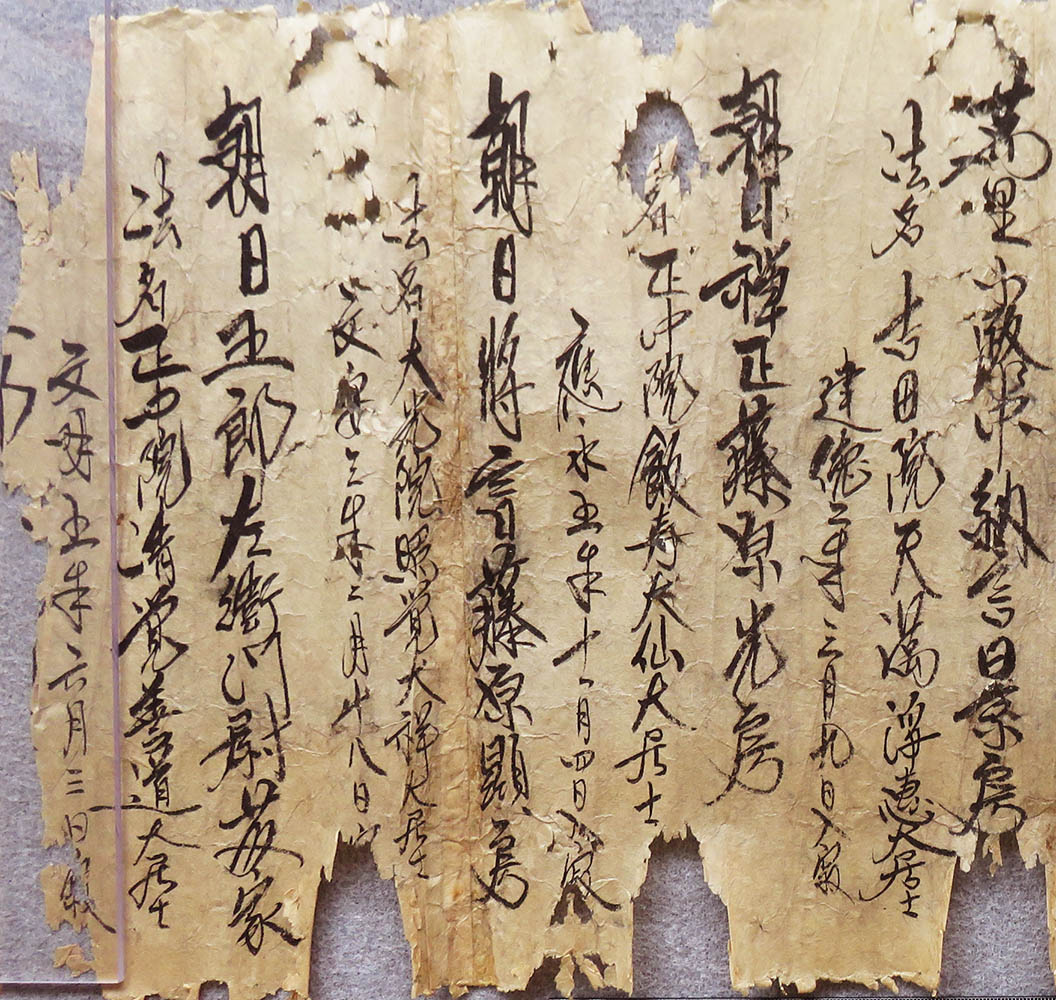 萬里小路中納言日景房
法名 吉田院天満浄恵大居士
建徳二年三月九日入寂
朝日禅正藤原光房
名正中院飯寿大仙大居士
應永五年十一月四日入寂
朝日将 藤原顕房
法名大光院照覚大祥大居士
文 年二月廿八日
朝日五郎左衛門尉 家
法名正 院清覚善道大居士
文明五年六月三日寂